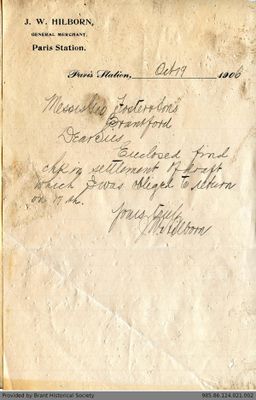 J. W. HILBORN,
GENERAL MERCHANT.
Paris Station.
Paris Station, Oct 19 1906
Messrs Geo Foster & Sons
Brantford
Dear Sirs
Enclosed find
chq in settlement of draft
which I was obliged to return
on 17 th.
Yours Truly
J W Hilborn
Provided by Brant Historical Society
985.86.124.021.002